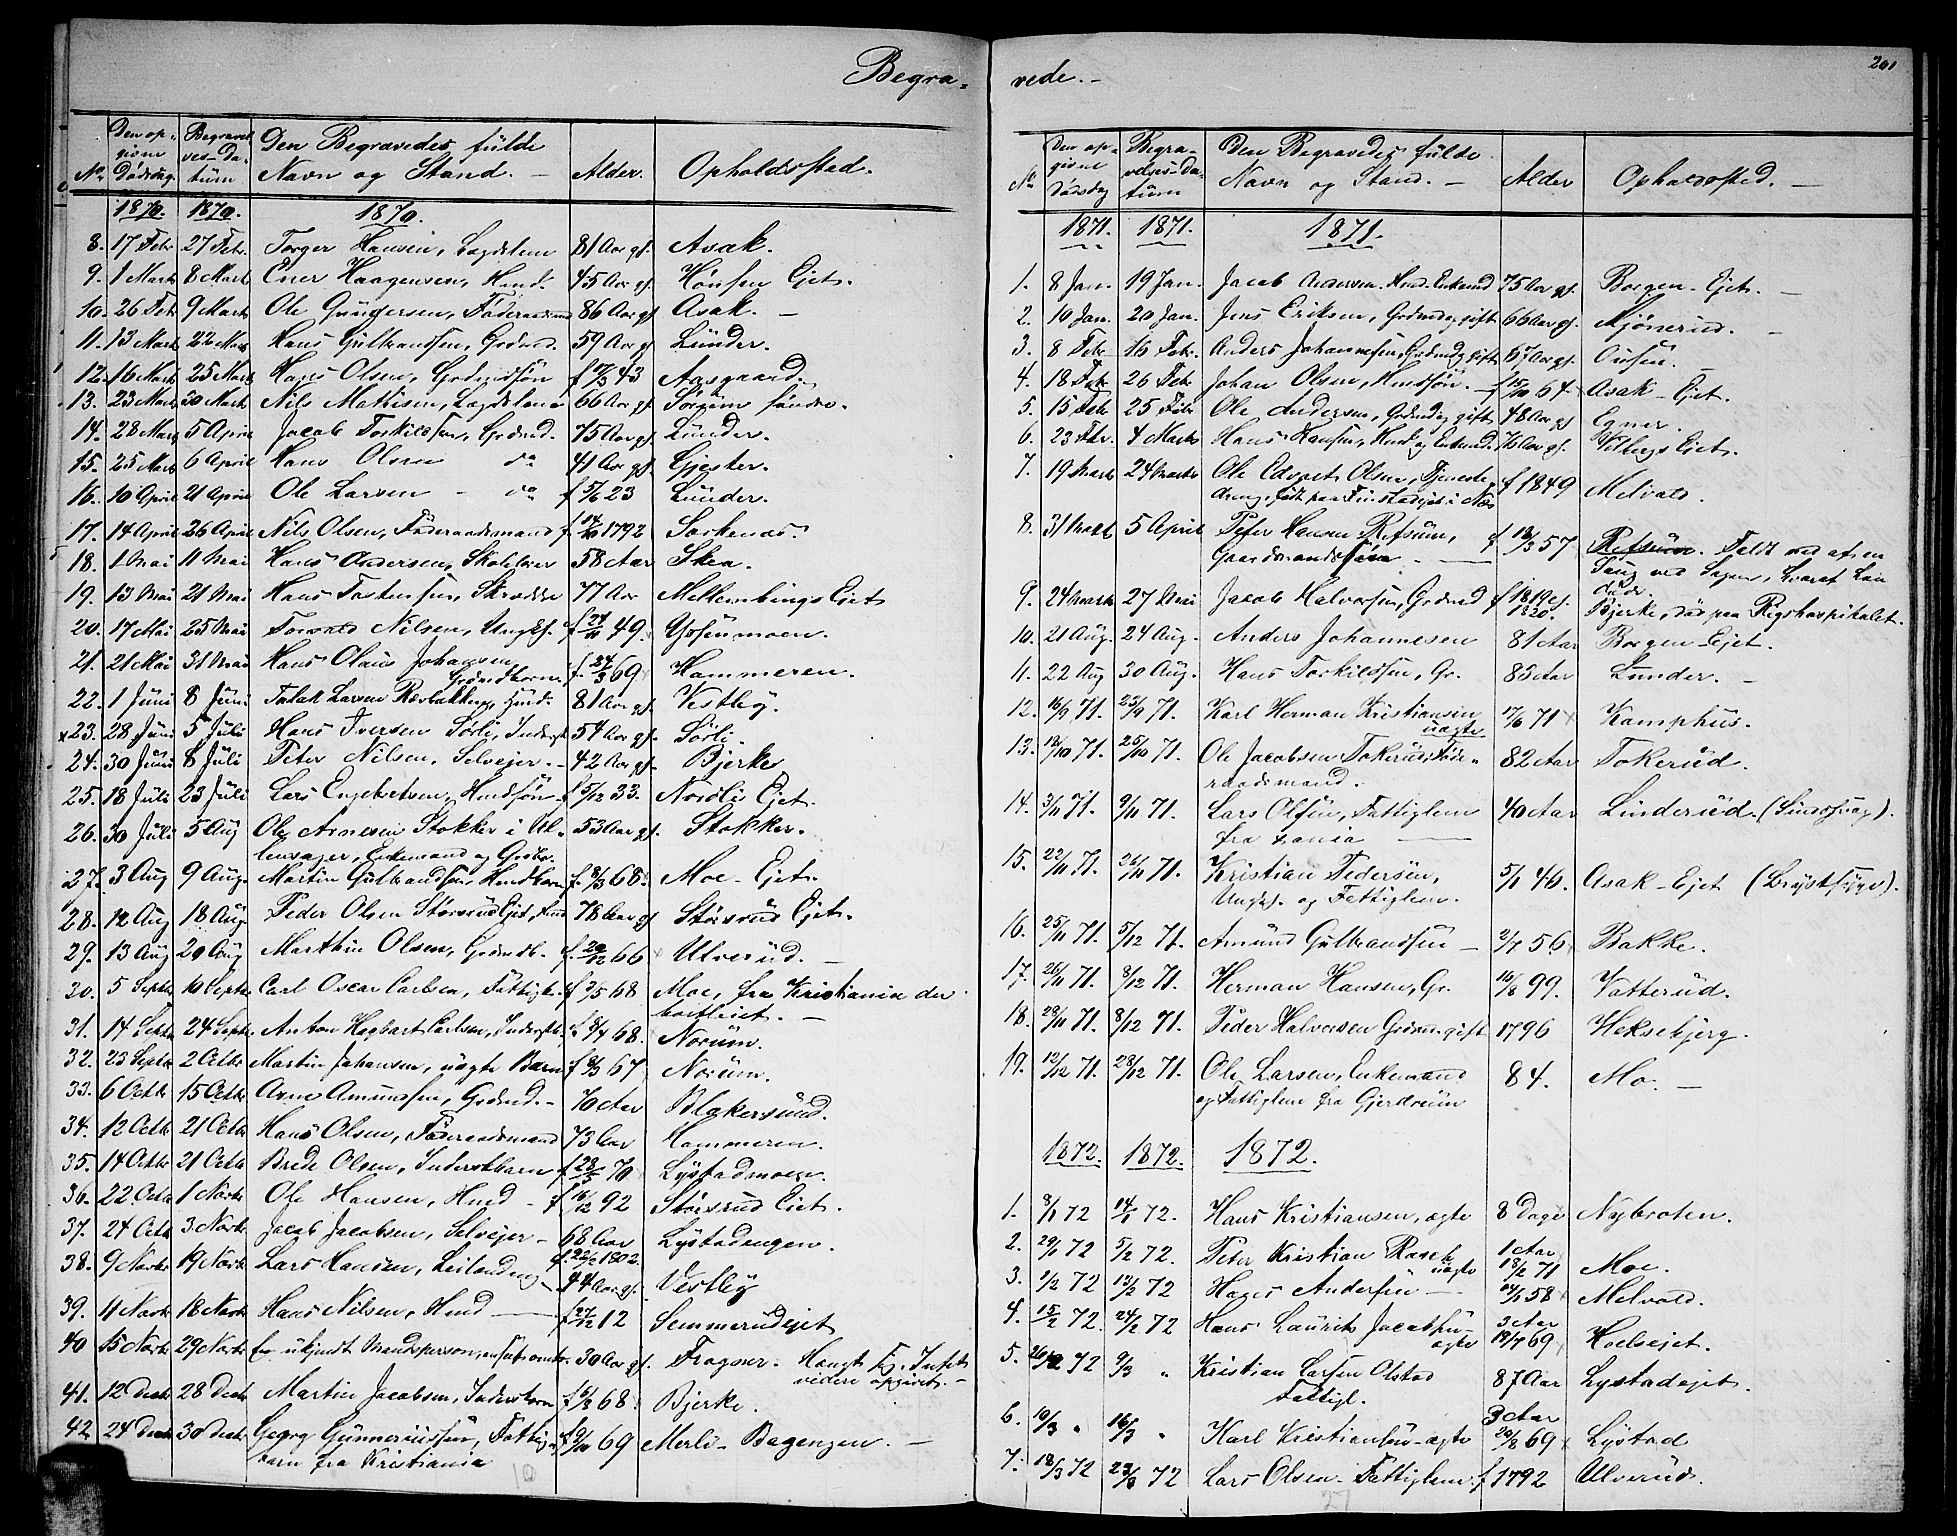 Begra-
No. Den op- givne Dødsdag. Begravel ves-Da- tum Den Begravedes fulde Navn og Stand. - Alder. Opholdsstad.
1870. 1870. 1870.
8. 17 Febr 27 Febr. Torger Hansen, Lægdslem 81 Aar gl. Asak.
9. 1 Marts 8 Marts Ener Haagensen, Hmd. 45 Aar gl. Hönsen Ejet.
10. 26 Febr 9 Marts Ole Gundersen, Föderaadsmand 86 Aar gl Asak. -
11. 13 Marts 22 Marts Hans Gulbrandsen, Grdmd. 59 Aar gl Lunder.
12. 16 Marts 25 Marts Hans Olsen, Grdmdsön f 43 Aasgaard.
13. 23 Marts 30 Marts Nils Mathisen, Lægdslem 66 Aar gl. Sörgim söndre.
14. 28 Marts 5 April Jacob Torkildsen, Grdmd. 75 Aar gl. Lunder.
15. 25 Marts 6 April Hans Olsen do 41 Aar gl. Gjester.
16. 10 April 21 April Ole Larsen - do f 5/6 23 Lunder.
17. 14 April 26 April Nils Olsen, Föderaadsmand f 1792 Sarkenas.
18. 1 Mai 11 Mai Hans Andersen, Skolelærer 58 Aar Skea.
19. 13 Mai 21 Mai Hans Tostensen, Skrædder 77 Aar Mellembings Ejet
20. 17 Mai 25 Mai Torvald Nilsen, Ungk. f. 49. Yssenmoen.
21. 21 Mai 31 Mai Hans Olaus Johansen, Grdmdbarn f. 69 Hammeren.
22. 1 Juni 8 Juni Talak Larsen Revbakken, Hmd. 81 Aar gl. Vestby.
23. 28 Juni 5 Juli Hans Iversen Sörli, Inderst 54 Aar gl. Sörli.
24. 30 Juni 8 Juli Peter Nilsen, Selvejer. - 42 Aar gl. Bjerke
25. 18 Juli 23 Juli Lars Engebretsen, Hmdsön f 5/12 33. Nordli Ejet.
26. 30 Juli 5 Aug Ole Arnesen Stokker i Ul- 53 Aar gl. Stokker.
lensager, Enkemand og Grdbr.
27. 3 Aug 9 Aug. Martin Gulbrandsen, Hmdbarn f. 8/3 68. Moe - Ejet.
28. 12 Aug 18 Aug Peder Olsen Störsrud Ejet, Hmd 78 Aar gl Störsrud Ejet.
29. 13 Aug 20 Aug Marthin Olsen, Grdmdb. f. 20/12 66 Ulverud. -
30. 5 Septr 10 Septr Carl Oscar Carlsen, Fattigbr. f 2/5 68 Moe, fra Kristiania der
bortleiet. -
31. 14 Septr 24 Septr Anton Hagbart Carlsen, Inderstb. f. 8/4 68. Norum.
32. 23 Septr 2 Octbr Martin Johansen, uægte Barn f 8/3 67 Norum.
33. 6 Octbr 15 Octbr Arne Amundsen, Grdmd. - 70 Aar Blakersund.
34. 12 Octb 21 Octb Hans Olsen, Föderaadsmand 73 Aar Hammeren.
35. 14 Octbr 21 Octb Brede Olsen, Inderstbarn f 28/5 70 Lystadmoen.
36. 22 Octbr 1 Novbr Ole Hansen, Hmd - f 16/12 92 Störsrud Ejet.
37. 24 Octb 3. Novbr. Jacob Jacobsen, Selvejer - 68 Aar Lystadengen.
38. 9 Novbr 19 Novbr Lars Hansen, Leilænding f. 22/2 1802. Vestby
44 Aar gl.
39. 11 Novbr 18 Novbr Hans Nilsen, Hmd f 27/12 12 Semmerudejet
40 15 Novbr 29 Novbr En ukjendt Mandsperson, 30 Aar gl. Fragner. Hængt sig. Intet
videre opgivet. -
41. 12 Decbr 28 Decbr Martin Jacobsen, Inderstbarn f 6/3 68 Bjerke.
42 24 Decbr 30 Decbr Georg Gunneriussen, Fattig- f 9/10 69 Merli - Bagengen. -
barn fra Kristiania
vede. -
201
No Den op- givne Dødsdag Begra- velses-Da- tum Den Begravedes fulde Navn og Stand. - Alder Opholdssted. -
1871. 1871. 1871.
1. 8 Jan. 19 Jan. Jacob Andersen. Hmd. Enkemd 75 Aar gl. Borgen - Ejet. -
2. 10 Jan. 20 Jan. Jens Eriksen, Grdmd og gift 66 Aar gl. Mjönerud. -
3. 8 Febr 16 Febr. Anders Johannesen, Grdmd, gift 67 Aar gl. Ousen.
4. 18 Feb 26 Febr Johan Olsen, Hmdsön. - f 15/10 64 Asak - Ejet.
5. 15 Feb 25 Febr Ole Andersen, Grdmd og gift 48 Aar gl Egner.
6. 23 Febr. 4 Marts Hans Hansen, Hmd og Enkemd. 76 Aar gl. Vilbergs Ejet.
7. 19 Marts 24 Marts Ole Edvart Olsen, Tjeneste- f 1849 Melvald.
dreng, født paa Finstadejet i Næs
8. 31 Marts 5 April Peter Hansen Refsum, f 18/3 57 Refsum. Faldt ned af en
Gaardmandssön Saug ved Sagen,
9. 24 Marts 27 Mai Jacob Halvorsen, Grdmd f 1819 el. 1820. Bjerke, död paa Rigshospitalet.
10. 21 Aug. 24 Aug. Anders Johannesen 81 Aar Borgen - Ejet.
11. 22 Aug 30 Aug. Hans Torkildsen, Gr. 85 Aar Lunder. -
12. 16/9 71. 23/9 71. Karl Herman Kristiansen 17/6 71 Kamphus.
uægte
13. 18/10 71. 25/10 71. Ole Jacobsen Tokerud, Föde- 82 Aar Tokerud.
raadsmand.
14. 3/11 71. 9/11 71. Lars Olsen, Fattiglem 40 Aar Linderud. (Sindssvag).
fra
15. 22/11 71. 26/11 71. Kristian Pedersen, 5/1 46. Asak - Ejet (Brystsyge).
Ungk. og Fattiglem.
16. 25/11 71. 5/12 71. Amund Gulbrandsen - 2/7 56 Bakke.
17. 26/11 71. 8/12 71. Herman Hansen, Gr. 16/8 99. Vatterud.
18. 28/11 71. 8/12 71. Peder Halvorsen Grdmd gift 1796 Heksebjerg.
19. 12/12 71. 28/12 71. Ole Larsen, Enkemand 84. Mo. -
og Fattiglem fra Gjerdrum
1872. 1872. 1872.
1. 8/1 72 14/1 72. Hans Kristiansen, ægte 8 Dage Nybroten.
2. 29/1 72 5/2 72. Peter Kristian Rasch uægte 1 Aar 18/2 71 Moe.
3. 1/2 72 13/2 72 Hans Andersen - 58 Melvold.
4. 15/2 72. 24/2 72 Hans Laurits Jacobsen ægte 3 Aar 69 Hoelsejet.
5. 26/2 72 9/3 " Kristian Larsen Olstad 87 Aar Lystadejet.
Fattigl.
6. 10/3 " 16/3 " Karl Kristiansen - ægte 3 Aar 20/8 69 Lystad
7. 18/3 72 23/3 72 Lars Olsen - Fattiglem f 1792 Ulverud.